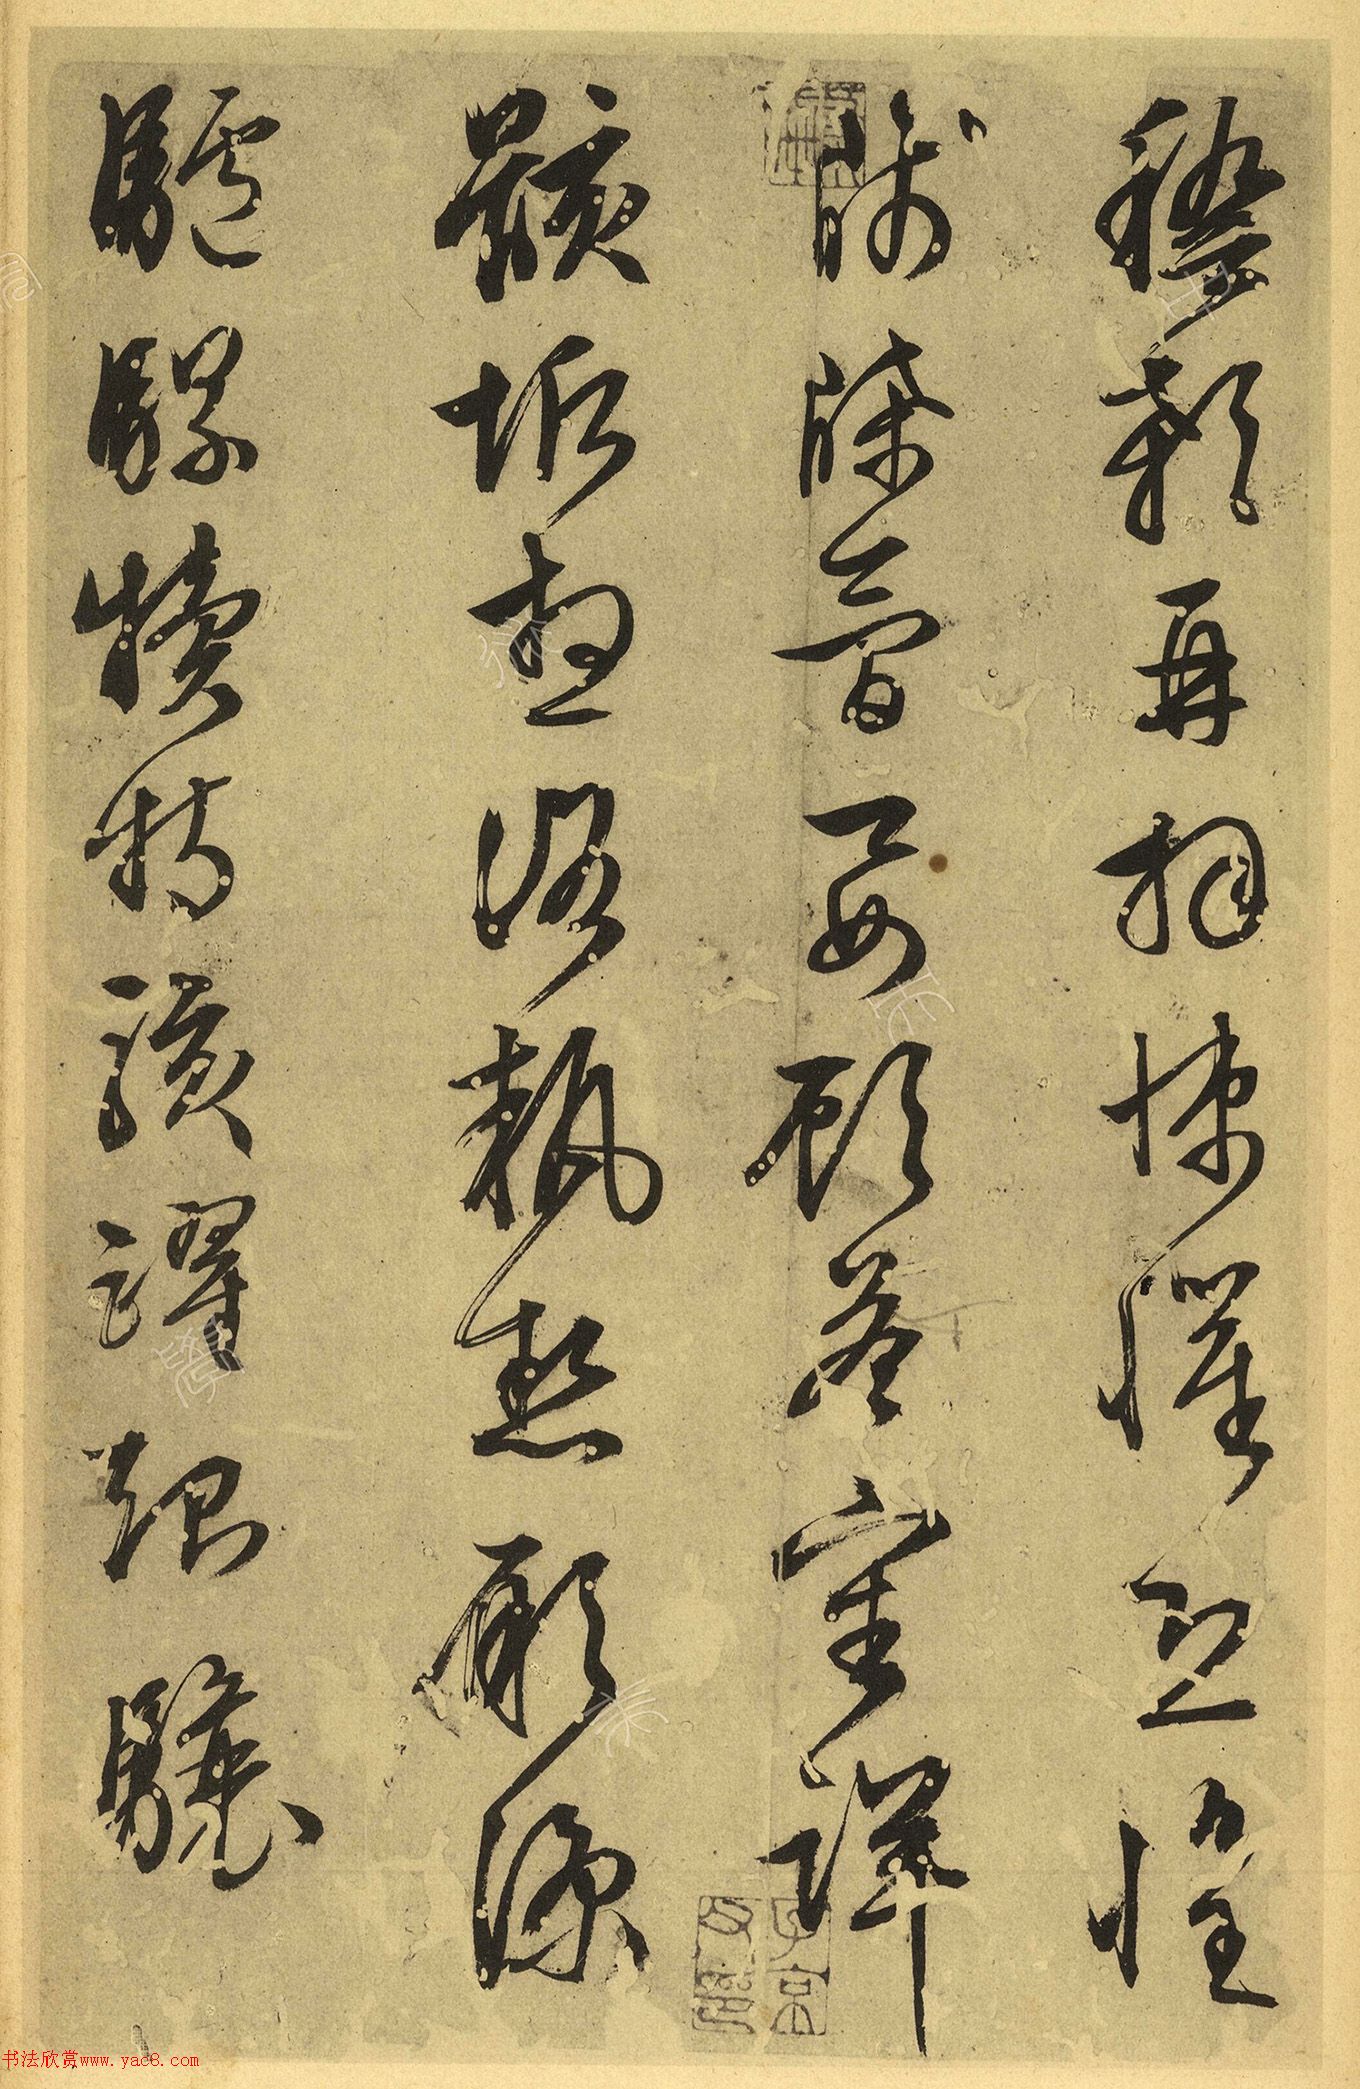 稽顙再拜悚懼恐惶
牋牒簡要顧答審詳
骸垢想浴執熱願涼
驢騾犢特駭躍超驤
子京父印
书法欣赏www.yac8.com